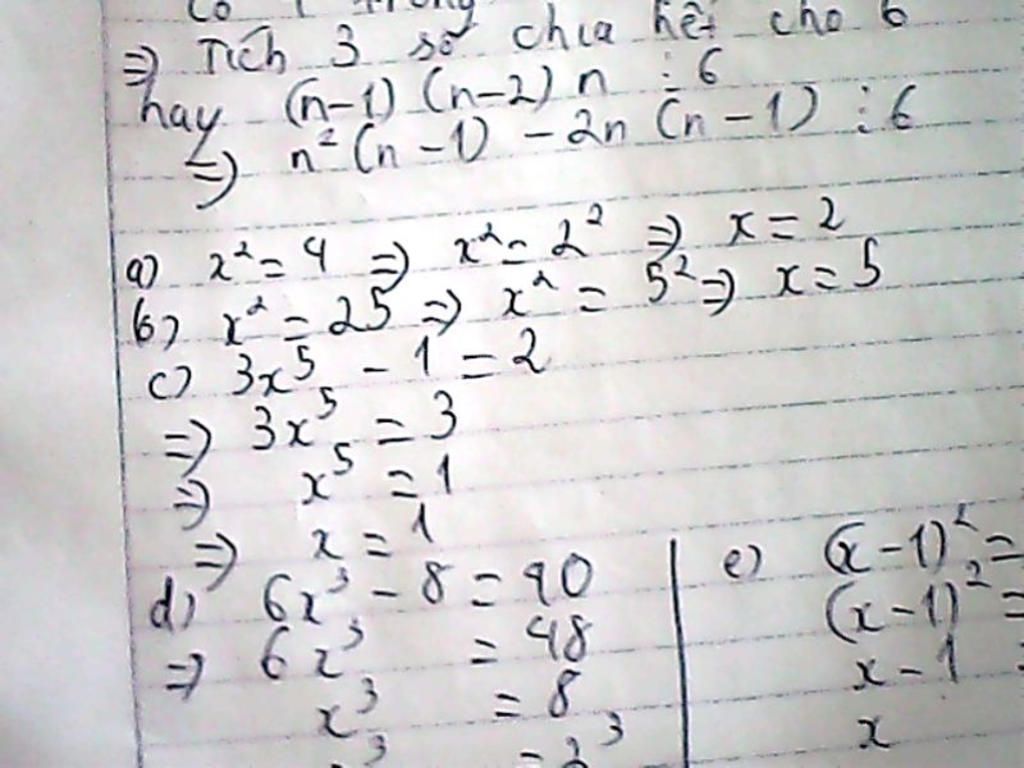 có 1
⇒ Tích 3 số chia hết cho 6
hay (n-1) (n-2) n ⋮ 6
⇒ n² (n - 1) - 2n (n - 1) ⋮ 6
a) x² = 4 ⇒ x² = 2² ⇒ x = 2
b) x² = 25 ⇒ x² = 5² ⇒ x = 5
c) 3x⁵ - 1 = 2
⇒ 3x⁵ = 3
⇒ x⁵ = 1
⇒ x = 1
d) 6x³ - 8 = 40
⇒ 6x³ = 48
x³ = 8
e) (x - 1)² =
(x - 1)² =
x - 1
x